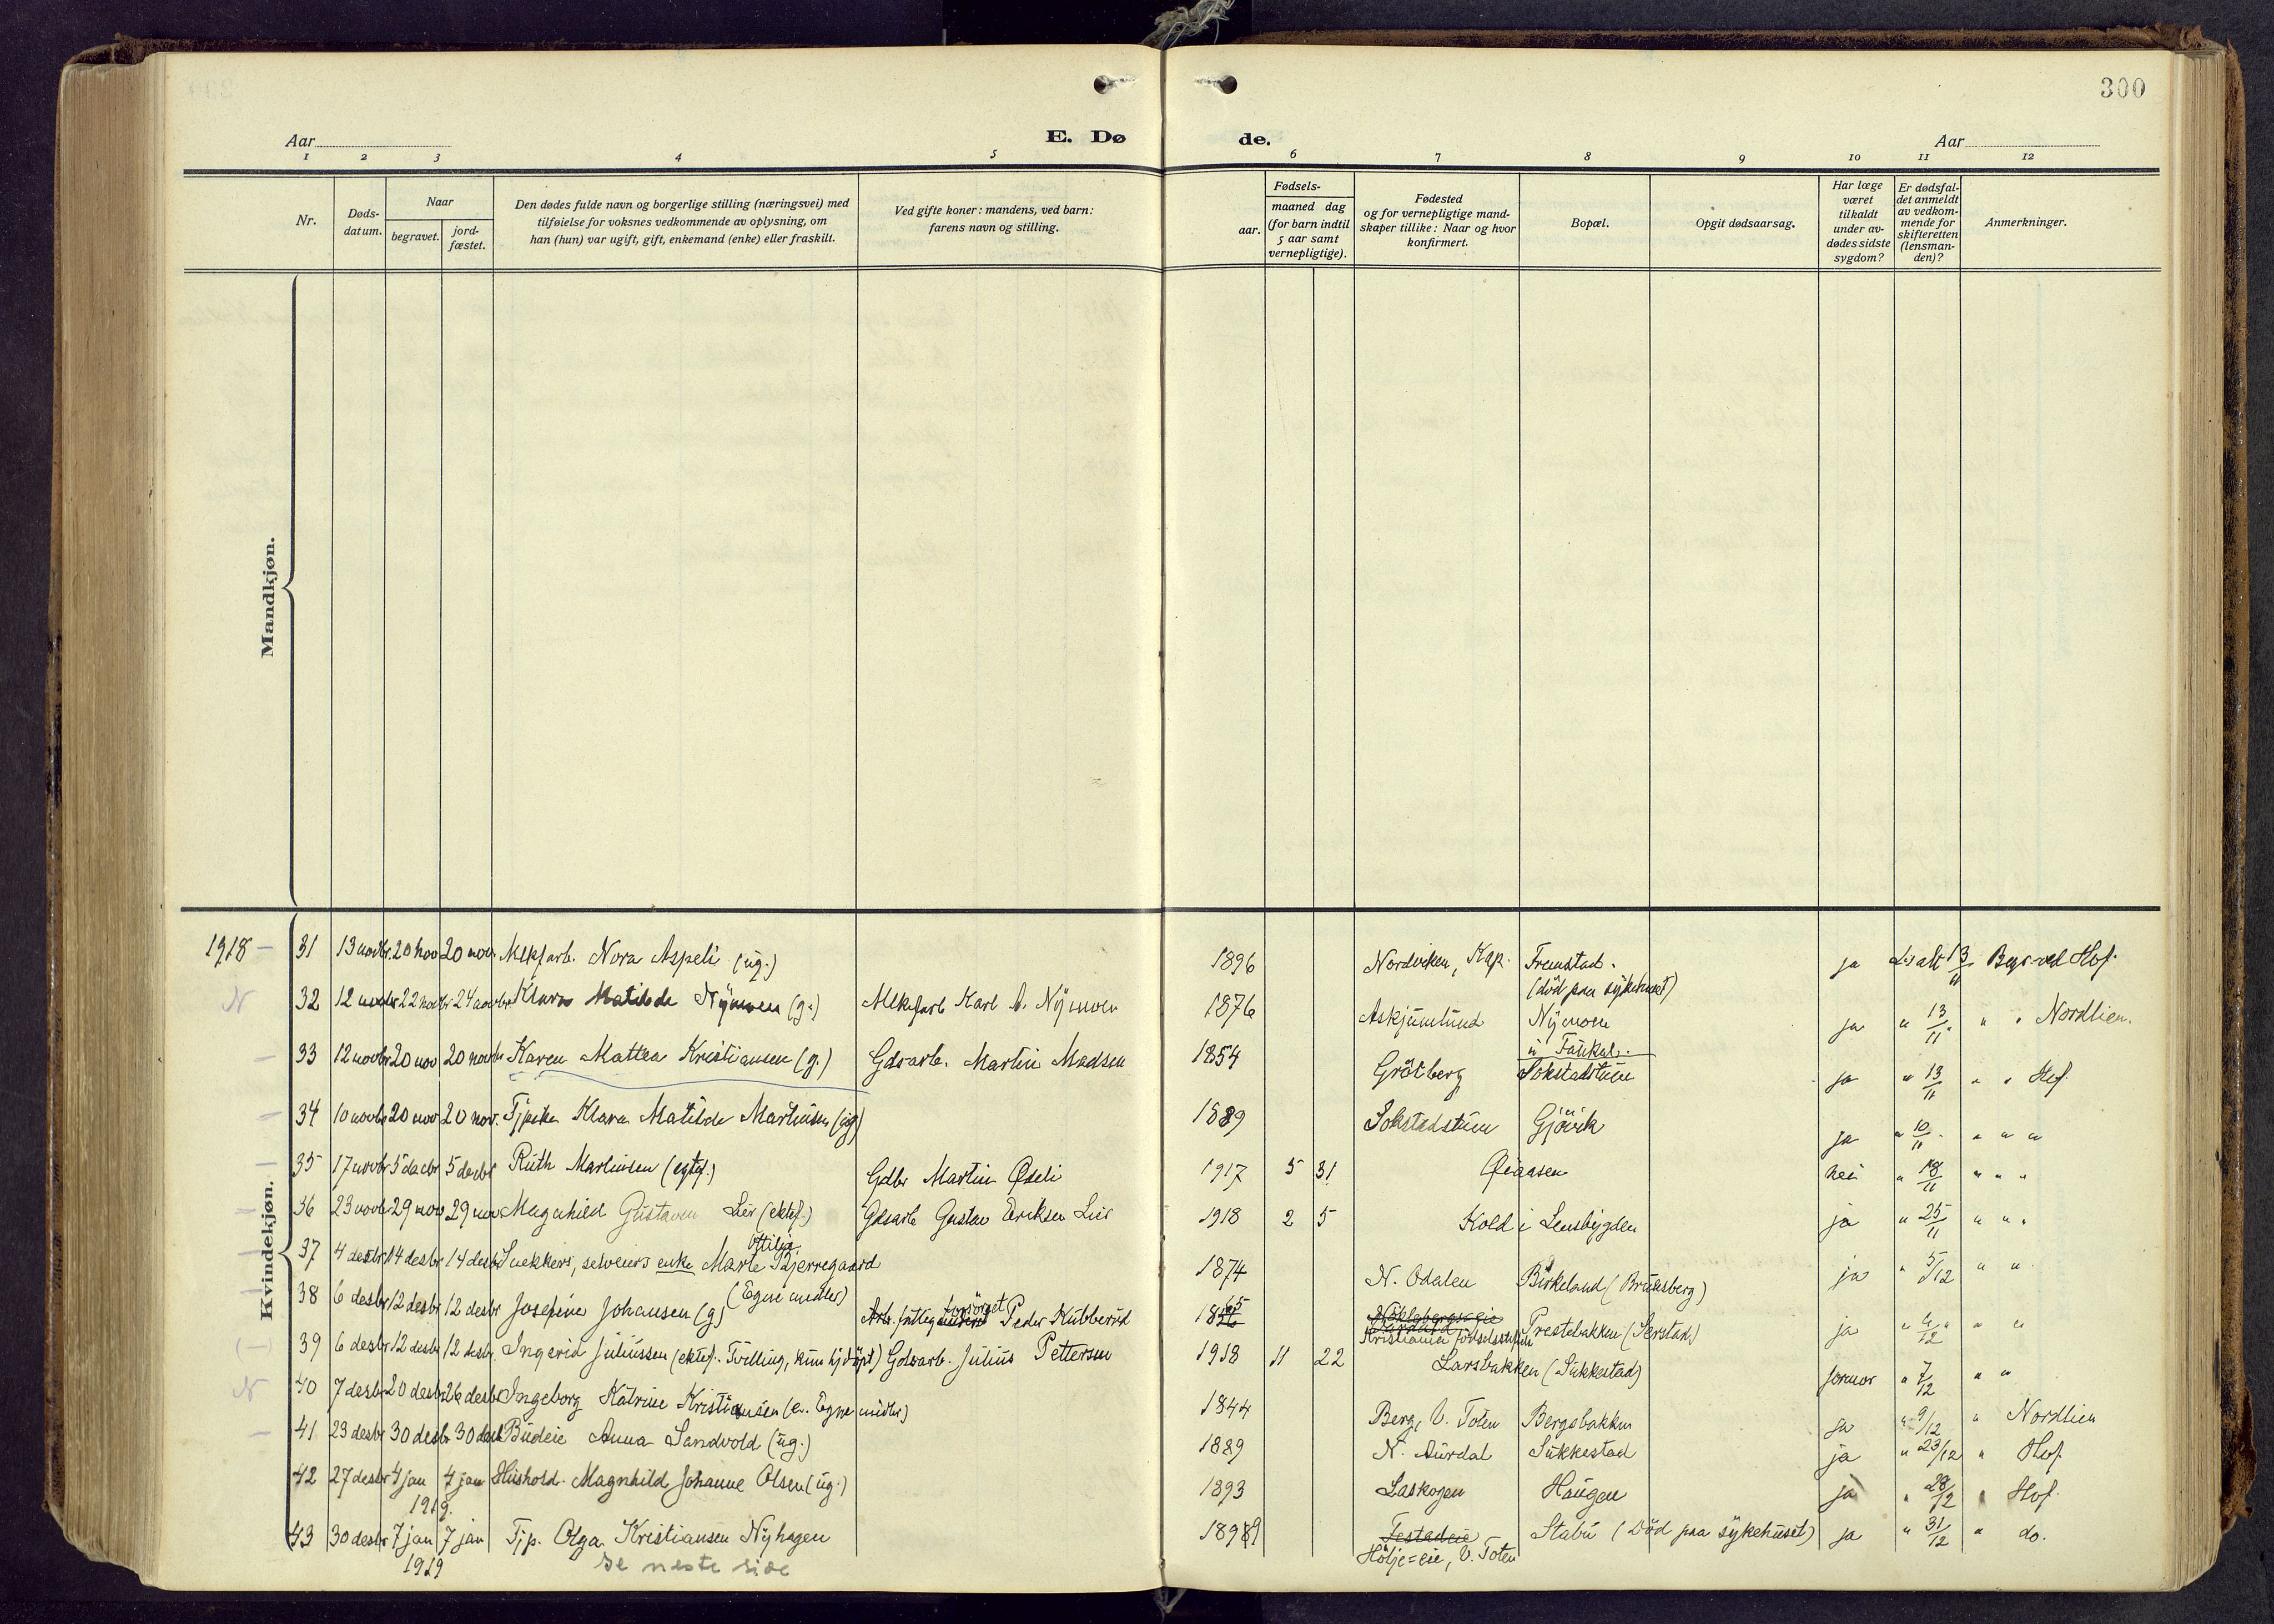 300
Aar
E. Dø
de.
Aar
1 2 3 4 5 6 7 8 9 10 11 12
Nr.
Døds-
datum.
Naar
begravet.
jord-
fæstet.
Den dødes fulde navn og borgerlige stilling (næringsvei) med
tilføielse for voksnes vedkommende av oplysning, om
han (hun) var ugift, gift, enkemand (enke) eller fraskilt.
Ved gifte koner: mandens, ved barn:
farens navn og stilling.
Fødsels-
aar.
maaned dag
(for barn indtil
5 aar samt
vernepligtige).
Fødested
og for vernepligtige mand-
skaper tillike: Naar og hvor
konfirmert.
Bopæl.
Opgit dødsaarsag.
Har læge
været
tilkaldt
under av-
dødes sidste
sygdom?
Er dødsfal-
det anmeldt
av vedkom-
mende for
skifteretten
(lensman-
den)?
Anmerkninger.
Mandkjøn.
Kvindekjøn.
1918 – 31 13 novbr. 20 nov 20 nov. Mekfarb. Nora Aspeli (ug.) 1896 Nordviken, Kap. Fremstad. ja 13/11 Begr. ved Hof.
(död paa sykehuset)
N 32 12 novbr 22 novbr 24 novbr Klara Matilde Nymoen (g.) Mekfarb Karl A. Nymoen 1876 Askjumlund Nymoen ja " 13/11 " " Nordlien.
– 33 12 novbr 20 nov 20 novbr Karen Mattea Kristiansen (g.) Gdsarb. Martin Madsen 1854 Grötberg Sokstadstuen ja " 13/11 " " Hof
– 34 10 novbr 20 nov 20 nov. Tjpike Klara Matilde Martinsen (ug) 1889 Sokstadstuen Gjövik ja " 10/11 " " "
– 35 17 novbr 5 decbr 5 decbr Ruth Martinsen (egtef.) Gdbr Martin Ødeli 1917 5 31 Øiaasen nei " 18/11 " " "
– 36 23 novbr 29 nov 29 nov Magnhild Gustavsen Lier (ektef.) Gdsarb Gustav Eriksen Lier 1918 2 5 Kold i Lensbygden ja " 25/11 " " "
– 37 4 desbr 14 desbr 14 desbr Snekkers, selveiers enke Marte Ottilia Bjerregaard 1874 N. Odalen Birkeland (Bruksberg) ja " 5/12 " "
(Egne midler)
– 38 6 desbr 12 desbr 12 desbr Josefine Johansen (g) Arb. fattig forsörget Peder Kubberud 1865 Kristiania födselsstiftelse Prestebakken (Serstad) ja " " "
(–) 39 6 desbr 12 desbr 12 desbr. Ingerid Juliussen (ektef. Tvilling, kun hj.döpt) Gdsarb. Julius Pettersen 1918 11 22 Larsbakken (Sukkestad) jormor " 7/12 " "
N 40 7 desbr 20 desbr 26 desbr Ingeborg Katrine Kristiansen (e. Egne midler) 1844 Berg, V. Toten Bergsbakken ja " 9/12 " Nordlien
– 41 23 desbr 30 desbr 30 desbr Budeie Anna Sandvold (ug.) 1889 N. Aurdal Sukkestad ja " 23/12 " Hof.
42 27 desbr 4 jan 4 jan Hushold. Magnhild Johanne Olsen (ug.) 1893 Laskogen Haugen ja " 28/12 " Hof.
1919.
43 30 desbr 7 jan 7 jan Tjp. Olga Kristiansen Nyhagen 1889 Testadeie Stabu (död paa sykehuset) ja " 31/12 " do.
1919 Hölje=eie, V. Toten
se neste side